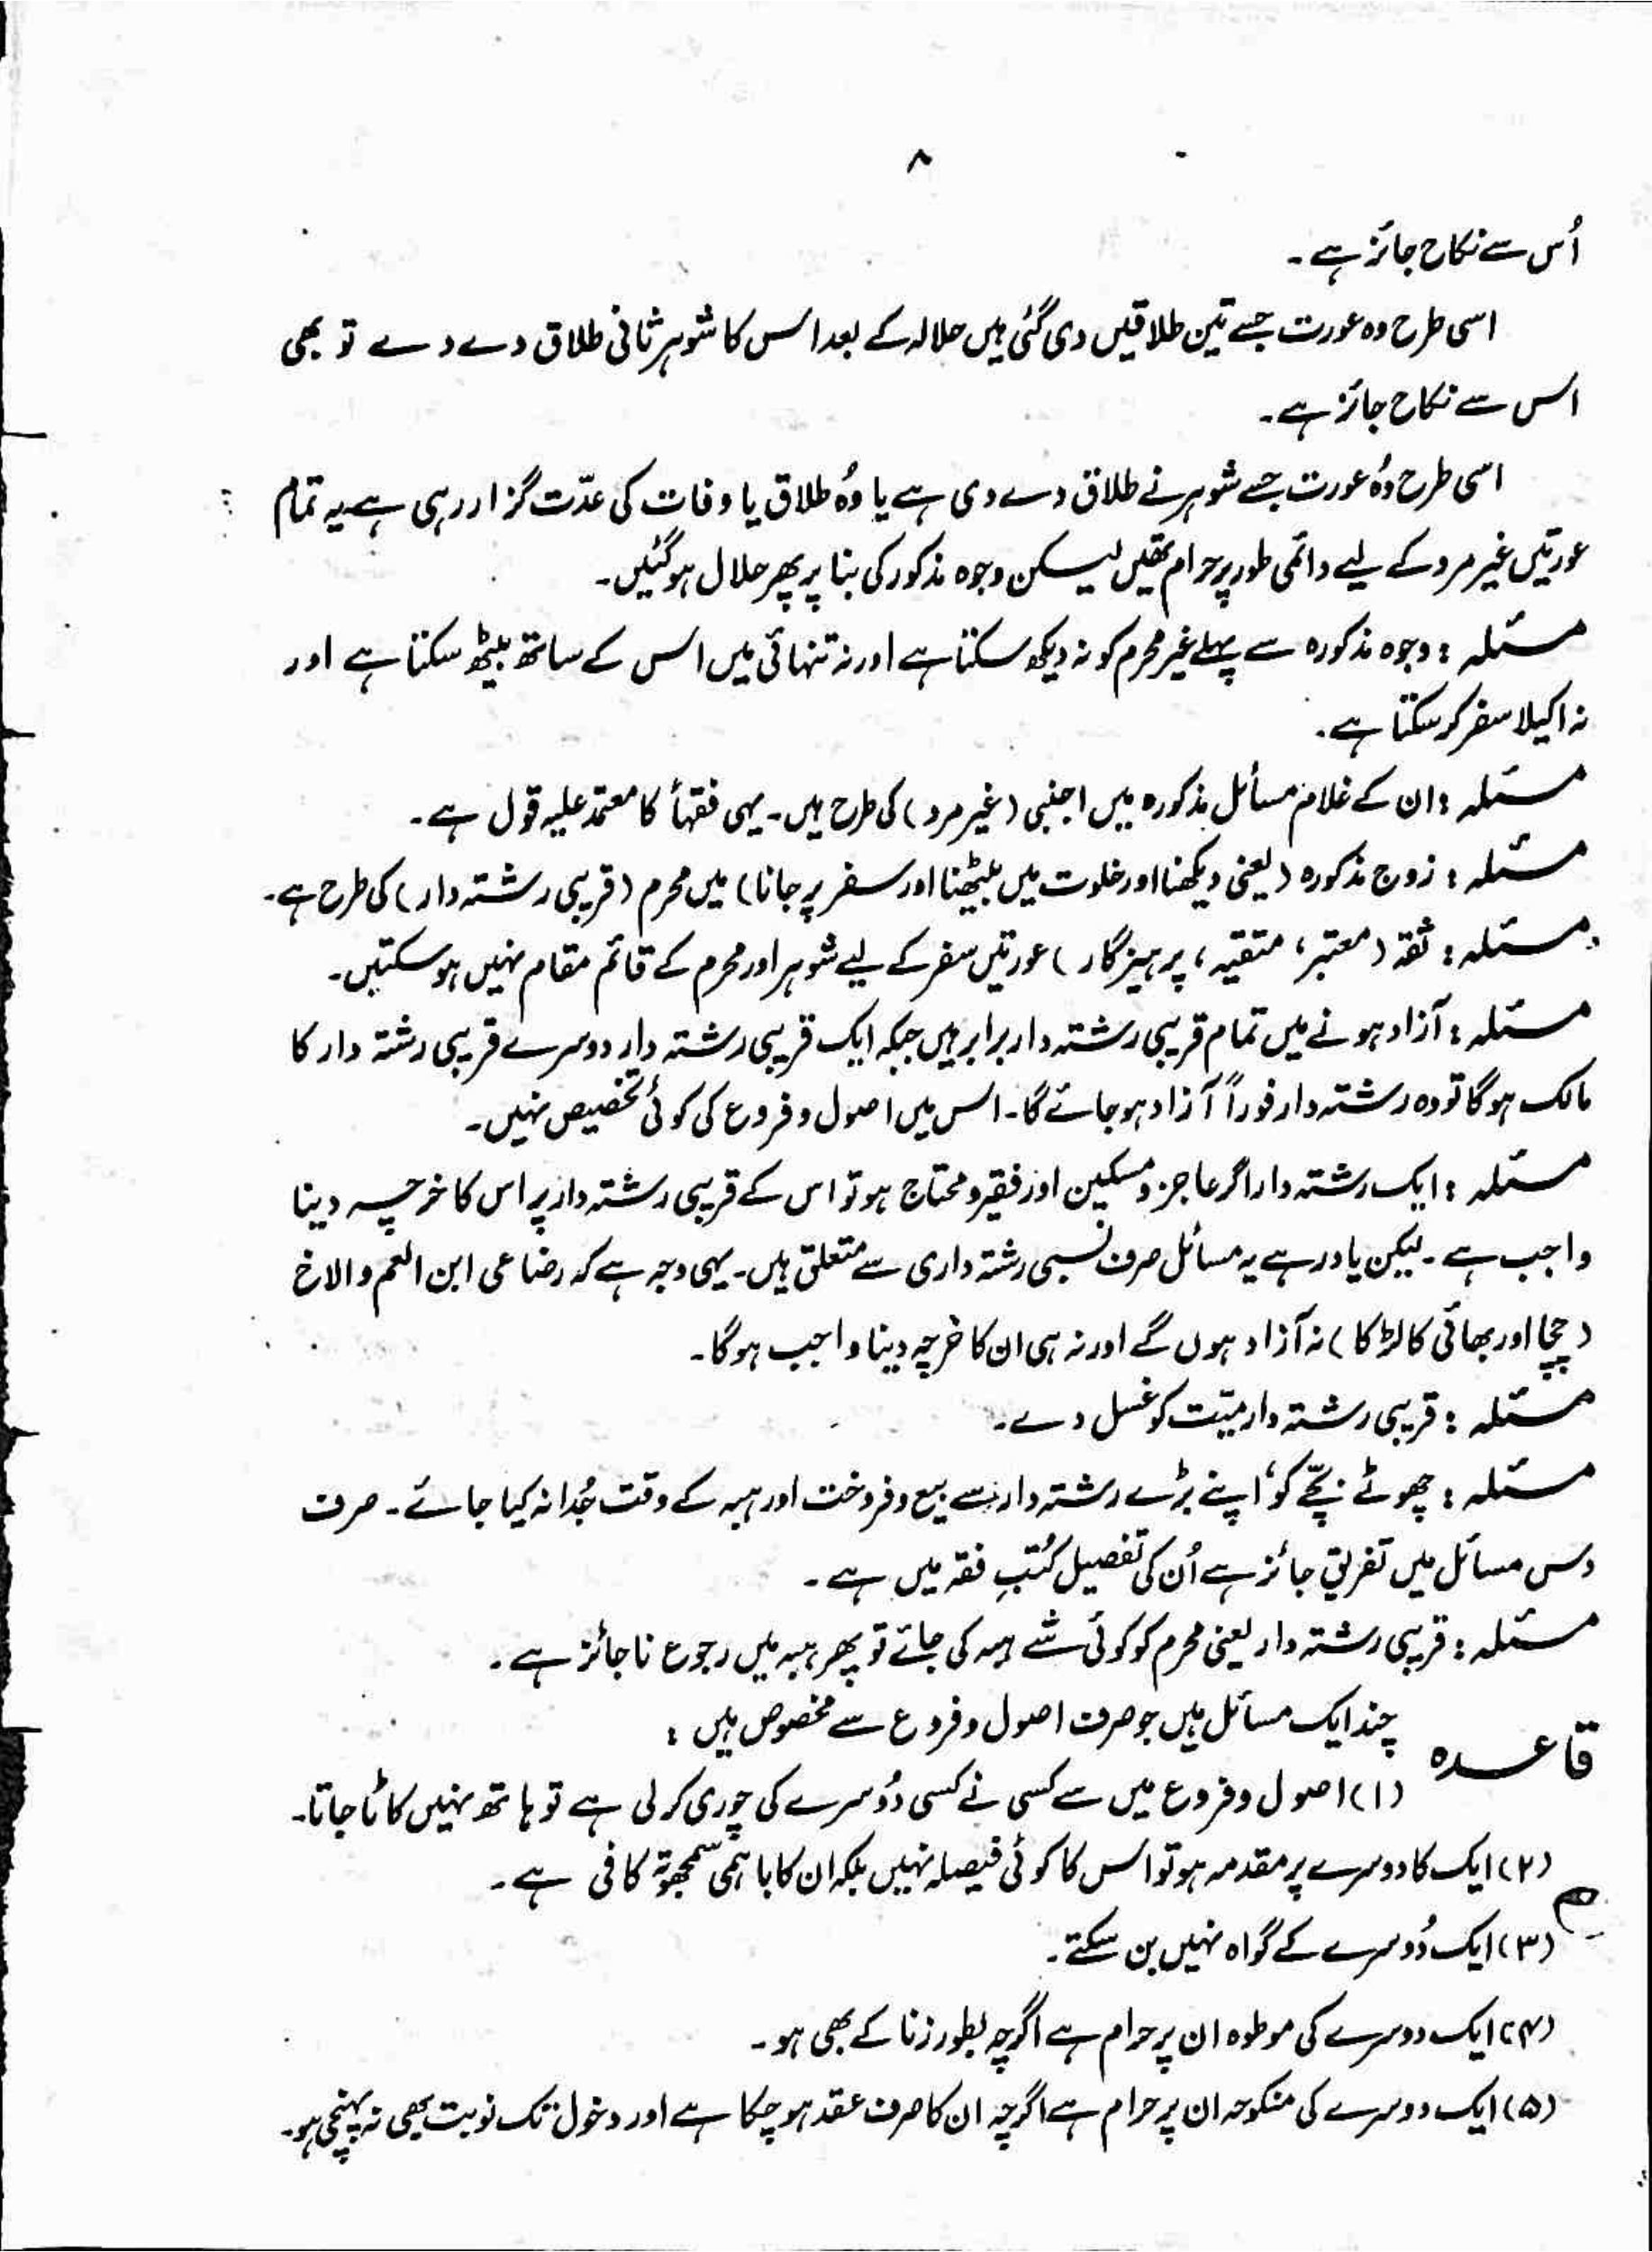 ۸
اُس سے نکاح جائز ہے۔
اسی طرح وہ عورت جسے تین طلاقیں دی گئی ہیں حلالہ کے بعد اس کا شوہر ثانی طلاق دے دے تو بھی
اس سے نکاح جائز ہے۔
اسی طرح وُہ عورت جسے شوہر نے طلاق دے دی ہے یا وُہ طلاق یا وفات کی عدّت گزار رہی ہے یہ تمام
عورتیں غیر مرد کے لیے دائمی طور پر حرام تھیں لیکن وجوہ مذکور کی بنا پر پھر حلال ہوگئیں۔
مسئلہ : وجوہ مذکورہ سے پہلے غیر محرم کو نہ دیکھ سکتا ہے اور نہ تنہائی میں اس کے ساتھ بیٹھ سکتا ہے اور
نہ اکیلا سفر کرسکتا ہے۔
مسئلہ : ان کے غلام مسائل مذکورہ میں اجنبی (غیر مرد) کی طرح ہیں۔ یہی فقہأ کا معتمد علیہ قول ہے۔
مسئلہ : زوج مذکورہ (یعنی دیکھنا اور خلوت میں بیٹھنا اور سفر پر جانا) میں محرم (قریبی رشتہ دار) کی طرح ہے۔
مسئلہ : ثقہ (معتبر، متقیہ، پرہیزگار) عورتیں سفر کے لیے شوہر اور محرم کے قائم مقام نہیں ہوسکتیں۔
مسئلہ : آزاد ہونے میں تمام قریبی رشتہ دار برابر ہیں جبکہ ایک قریبی رشتہ دار دوسرے قریبی رشتہ دار کا
مالک ہوگا تو وہ رشتہ دار فوراً آزاد ہوجائے گا۔ اس میں اصول و فروع کی کوئی تخصیص نہیں۔
مسئلہ : ایک رشتہ دار اگر عاجز و مسکین اور فقیر و محتاج ہو تو اس کے قریبی رشتہ دار پر اس کا خرچہ دینا
واجب ہے۔ لیکن یاد رہے یہ مسائل صرف نسبی رشتہ داری سے متعلق ہیں۔ یہی وجہ ہے کہ رضاعی ابن العم والاخ
(چچا اور بھائی کا لڑکا) نہ آزاد ہوں گے اور نہ ہی ان کا خرچہ دینا واجب ہوگا۔
مسئلہ : قریبی رشتہ دار میّت کو غسل دے۔
مسئلہ : چھوٹے بچّے کو، اپنے بڑے رشتہ دار سے بیع و فروخت اور ہبہ کے وقت جُدا نہ کیا جائے۔ صرف
دس مسائل میں تفریق جائز ہے اُن کی تفصیل کُتبِ فقہ میں ہے۔
مسئلہ : قریبی رشتہ دار یعنی محرم کو کوئی شے ہبہ کی جائے تو پھر ہبہ میں رجوع ناجائز ہے۔
قاعدہ چند ایک مسائل ہیں جو صرف اصول و فروع سے مخصوص ہیں :
(۱) اصول و فروع میں سے کسی نے کسی دُوسرے کی چوری کرلی ہے تو ہاتھ نہیں کاٹا جاتا۔
(۲) ایک کا دوسرے پر مقدمہ ہو تو اس کا کوئی فیصلہ نہیں بلکہ ان کا باہمی سمجھوتہ کافی ہے۔
(۳) ایک دُوسرے کے گواہ نہیں بن سکتے۔
(۴) ایک دوسرے کی موطوہ ان پر حرام ہے اگرچہ بطور زنا کے بھی ہو۔
(۵) ایک دوسرے کی منکوحہ ان پر حرام ہے اگرچہ ان کا صرف عقد ہوچکا ہے اور دخول تک نوبت بھی نہ پہنچی ہو۔